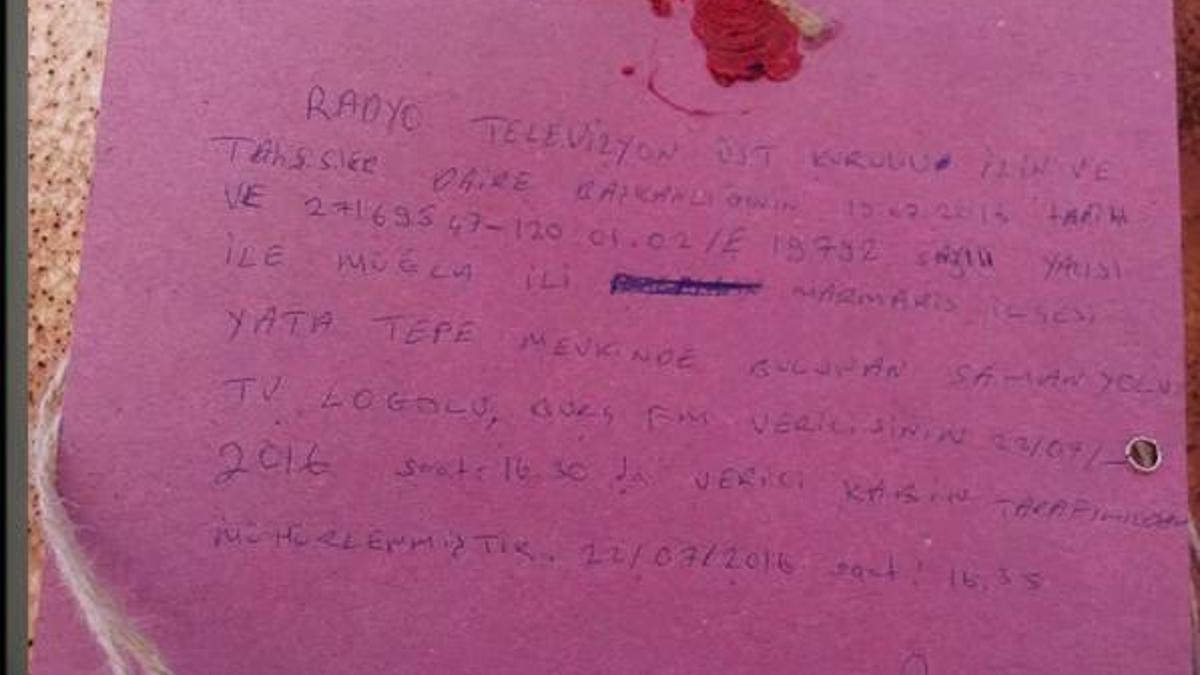 RADYO TELEVİZYON ÜST KURULU İZİN VE
TAHSİSLER DAİRE BAŞKANLIĞININ 19.07.2016 TARİH
VE 27169547-120 01.02/E 19792 SAYILI YAZISI
İLE MUĞLA İLİ MARMARİS İLÇESİ
YATA TEPE MEVKİNDE BULUNAN SAMANYOLU
TV LOGOLU, BURÇ FM VERİCİSİNİN 22/07/
2016 saat: 16.30 da VERİCİ KABİN TARAFIMIZDAN
MÜHÜRLENMİŞTİR. 22/07/2016 saat: 16,35